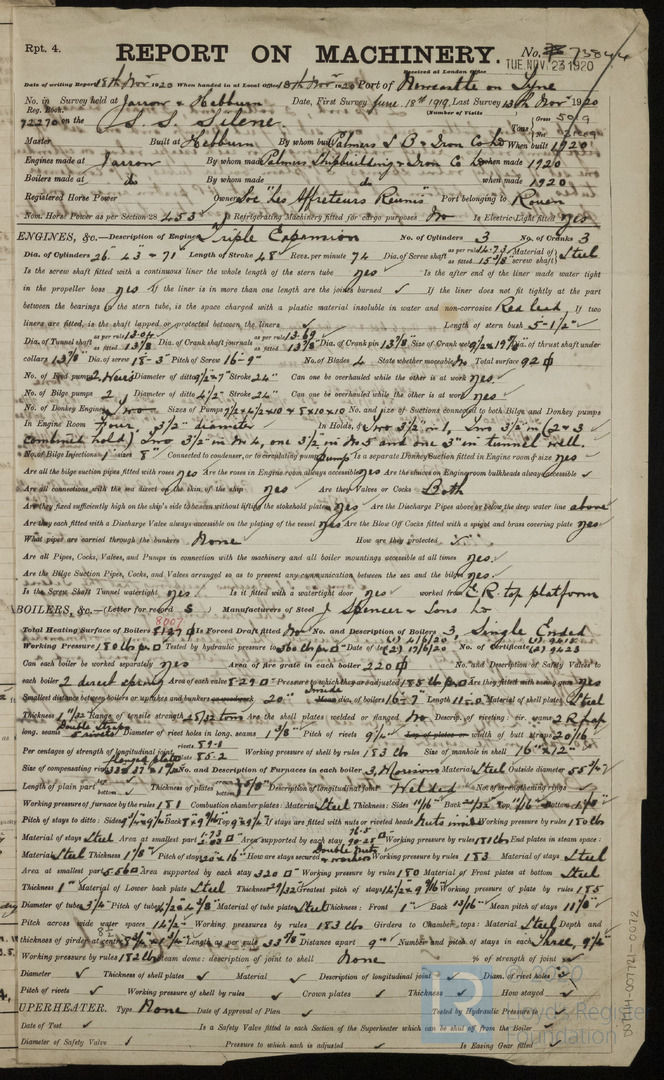 Rpt. 4. REPORT ON MACHINERY. No. 73844
Received at London Office TUE. NOV. 23 1920
Date of writing Report 18th Novr 1920 When handed in at Local Office 18th Novr 1920 Port of Newcastle on Tyne
No. in Survey held at Jarrow & Hebburn Date, First Survey June 18th 1919, Last Survey 13th Novr 1920
Reg. Book. (Number of Visits
72270 on the S. S. Silene Tons Gross 5019 Net
Master Built at Hebburn By whom built Palmers S B & Iron Co Ld When built 1920
Engines made at Jarrow By whom made Palmers Shipbuilding & Iron Co Ld when made 1920
Boilers made at do By whom made do when made 1920
Registered Horse Power Owners Soc "Les Affreteurs Reunis" Port belonging to Rouen
Nom. Horse Power as per Section 28 453 Is Refrigerating Machinery fitted for cargo purposes No Is Electric Light fitted yes
ENGINES, &c.—Description of Engines Triple Expansion No. of Cylinders 3 No. of Cranks 3
Dia. of Cylinders 26" 43" & 71" Length of Stroke 48" Revs. per minute 74 Dia. of Screw shaft as per rule 14.73 as fitted 15 7/8" Material of screw shaft Steel
Is the screw shaft fitted with a continuous liner the whole length of the stern tube yes Is the after end of the liner made water tight
in the propeller boss yes If the liner is in more than one length are the joints burned ✓ If the liner does not fit tightly at the part
between the bearings in the stern tube, is the space charged with a plastic material insoluble in water and non-corrosive Red lead If two
liners are fitted, is the shaft lapped or protected between the liners ✓ Length of stern bush 5'-1 1/2"
Dia. of Tunnel shaft as per rule 13.04 as fitted 13 5/8 Dia. of Crank shaft journals as per rule 13.69 as fitted 13 7/8" Dia. of Crank pin 13 7/8" Size of Crank webs Dia. of thrust shaft under
collars 13 7/8" Dia. of screw 18-3" Pitch of Screw 16-9" No. of Blades 4 State whether moveable No Total surface 92
No. of Feed pumps 2 Weirs Diameter of ditto 9 1/2 & 7" Stroke 24" Can one be overhauled while the other is at work yes
No. of Bilge pumps 2 Diameter of ditto 4 1/2" Stroke 24" Can one be overhauled while the other is at work yes
No. of Donkey Engines Two Sizes of Pumps No. and size of Suctions connected to both Bilge and Donkey pumps
In Engine Room Four, 3 1/2" diameter In Holds, &c. Two 3 1/2" in 1, Two 3 1/2" in (2 & 3
combined hold) Two 3 1/2" in No 4, one 3 1/2" in No 5 and one 3" in tunnel well.
No. of Bilge Injections 1 sizes 8" Connected to condenser, or to circulating pump Pump Is a separate Donkey Suction fitted in Engine room & size yes
Are all the bilge suction pipes fitted with roses yes Are the roses in Engine room always accessible yes Are the sluices on Engine room bulkheads always accessible ✓
Are all connections with the sea direct on the skin of the ship yes Are they Valves or Cocks Both
Are they fixed sufficiently high on the ship's side to be seen without lifting the stokehold plates yes Are the Discharge Pipes above or below the deep water line above
Are they each fitted with a Discharge Valve always accessible on the plating of the vessel yes Are the Blow Off Cocks fitted with a spigot and brass covering plate yes
What pipes are carried through the bunkers None How are they protected
Are all Pipes, Cocks, Valves, and Pumps in connection with the machinery and all boiler mountings accessible at all times yes
Are the Bilge Suction Pipes, Cocks, and Valves arranged so as to prevent any communication between the sea and the bilges yes
Is the Screw Shaft Tunnel watertight yes Is it fitted with a watertight door yes worked from E. R. top platform
BOILERS, &c.—(Letter for record S ) Manufacturers of Steel J Spencer & Sons Ld
8007
Total Heating Surface of Boilers Is Forced Draft fitted No No. and Description of Boilers 3, Single Ended
Working Pressure 180 lbs Tested by hydraulic pressure to 360 lbs Date of test (1) 4/6/20 (2) 17/6/20 No. of Certificate (1) 9415 (2) 9423
Can each boiler be worked separately yes Area of fire grate in each boiler 220 No. and Description of Safety Valves to
each boiler 2 direct spring Area of each valve 8.29 Pressure to which they are adjusted 185 lb Are they fitted with easing gear yes
Smallest distance between boilers or uptakes and bunkers 20" Inside dia. of boilers 16-7" Length Material of shell plates Steel
Thickness Range of tensile strength 28/32 tons Are the shell plates welded or flanged No Descrip. of riveting: cir. seams 2 R. lap
long. seams Double Straps 5 rivets Diameter of rivet holes in long. seams 1 5/8" Pitch of rivets 9 1/4" width of butt straps 20 1/16
Per centages of strength of longitudinal joint rivets plate 85.2 Working pressure of shell by rules 183 lbs Size of manhole in shell 16" x 12"
Size of compensating ring flanged plate No. and Description of Furnaces in each boiler 3, Morisons Material Steel Outside diameter
Length of plain part top bottom Thickness of plates Description of longitudinal joint Welded No. of strengthening rings ✓
Working pressure of furnace by the rules 181 Combustion chamber plates: Material Steel Thickness: Sides 11/16" Back 21/32 Top 11/16" Bottom
Pitch of stays to ditto: Sides Back Top If stays are fitted with nuts or riveted heads Nuts inside Working pressure by rules 180 lbs
Material of stays Steel Area at smallest part Area supported by each stay Working pressure by rules 181 lbs End plates in steam space:
Material Steel Thickness 1 1/8" Pitch of stays 20 x 16" How are stays secured Double nuts & washers Working pressure by rules 183 Material of stays Steel
Area at smallest part Area supported by each stay 320 Working pressure by rules 180 Material of Front plates at bottom Steel
Thickness 1" Material of Lower back plate Steel Thickness 29/32 Greatest pitch of stays Working pressure of plate by rules 185
Diameter of tubes 3 1/4" Pitch of tubes Material of tube plates Steel Thickness: Front 1" Back 13/16" Mean pitch of stays 11 5/8"
Pitch across wide water spaces 14 1/2" Working pressures by rules 183 lbs Girders to Chamber tops: Material Steel Depth and
thickness of girder at centre Length as per rule Distance apart 9" Number and pitch of stays in each Three, 9 1/4"
Working pressure by rules 182 lbs Steam dome: description of joint to shell None % of strength of joint ✓
Diameter ✓ Thickness of shell plates ✓ Material ✓ Description of longitudinal joint ✓ Diam. of rivet holes ✓
Pitch of rivets ✓ Working pressure of shell by rules ✓ Crown plates ✓ Thickness ✓ How stayed ✓
SUPERHEATER. Type None Date of Approval of Plan ✓ Tested by Hydraulic Pressure to
Date of Test ✓ Is a Safety Valve fitted to each Section of the Superheater which can be shut off from the Boiler ✓
Diameter of Safety Valve ✓ Pressure to which each is adjusted ✓ Is Easing Gear fitted ✓
© 2020
Lloyd's Register
Foundation